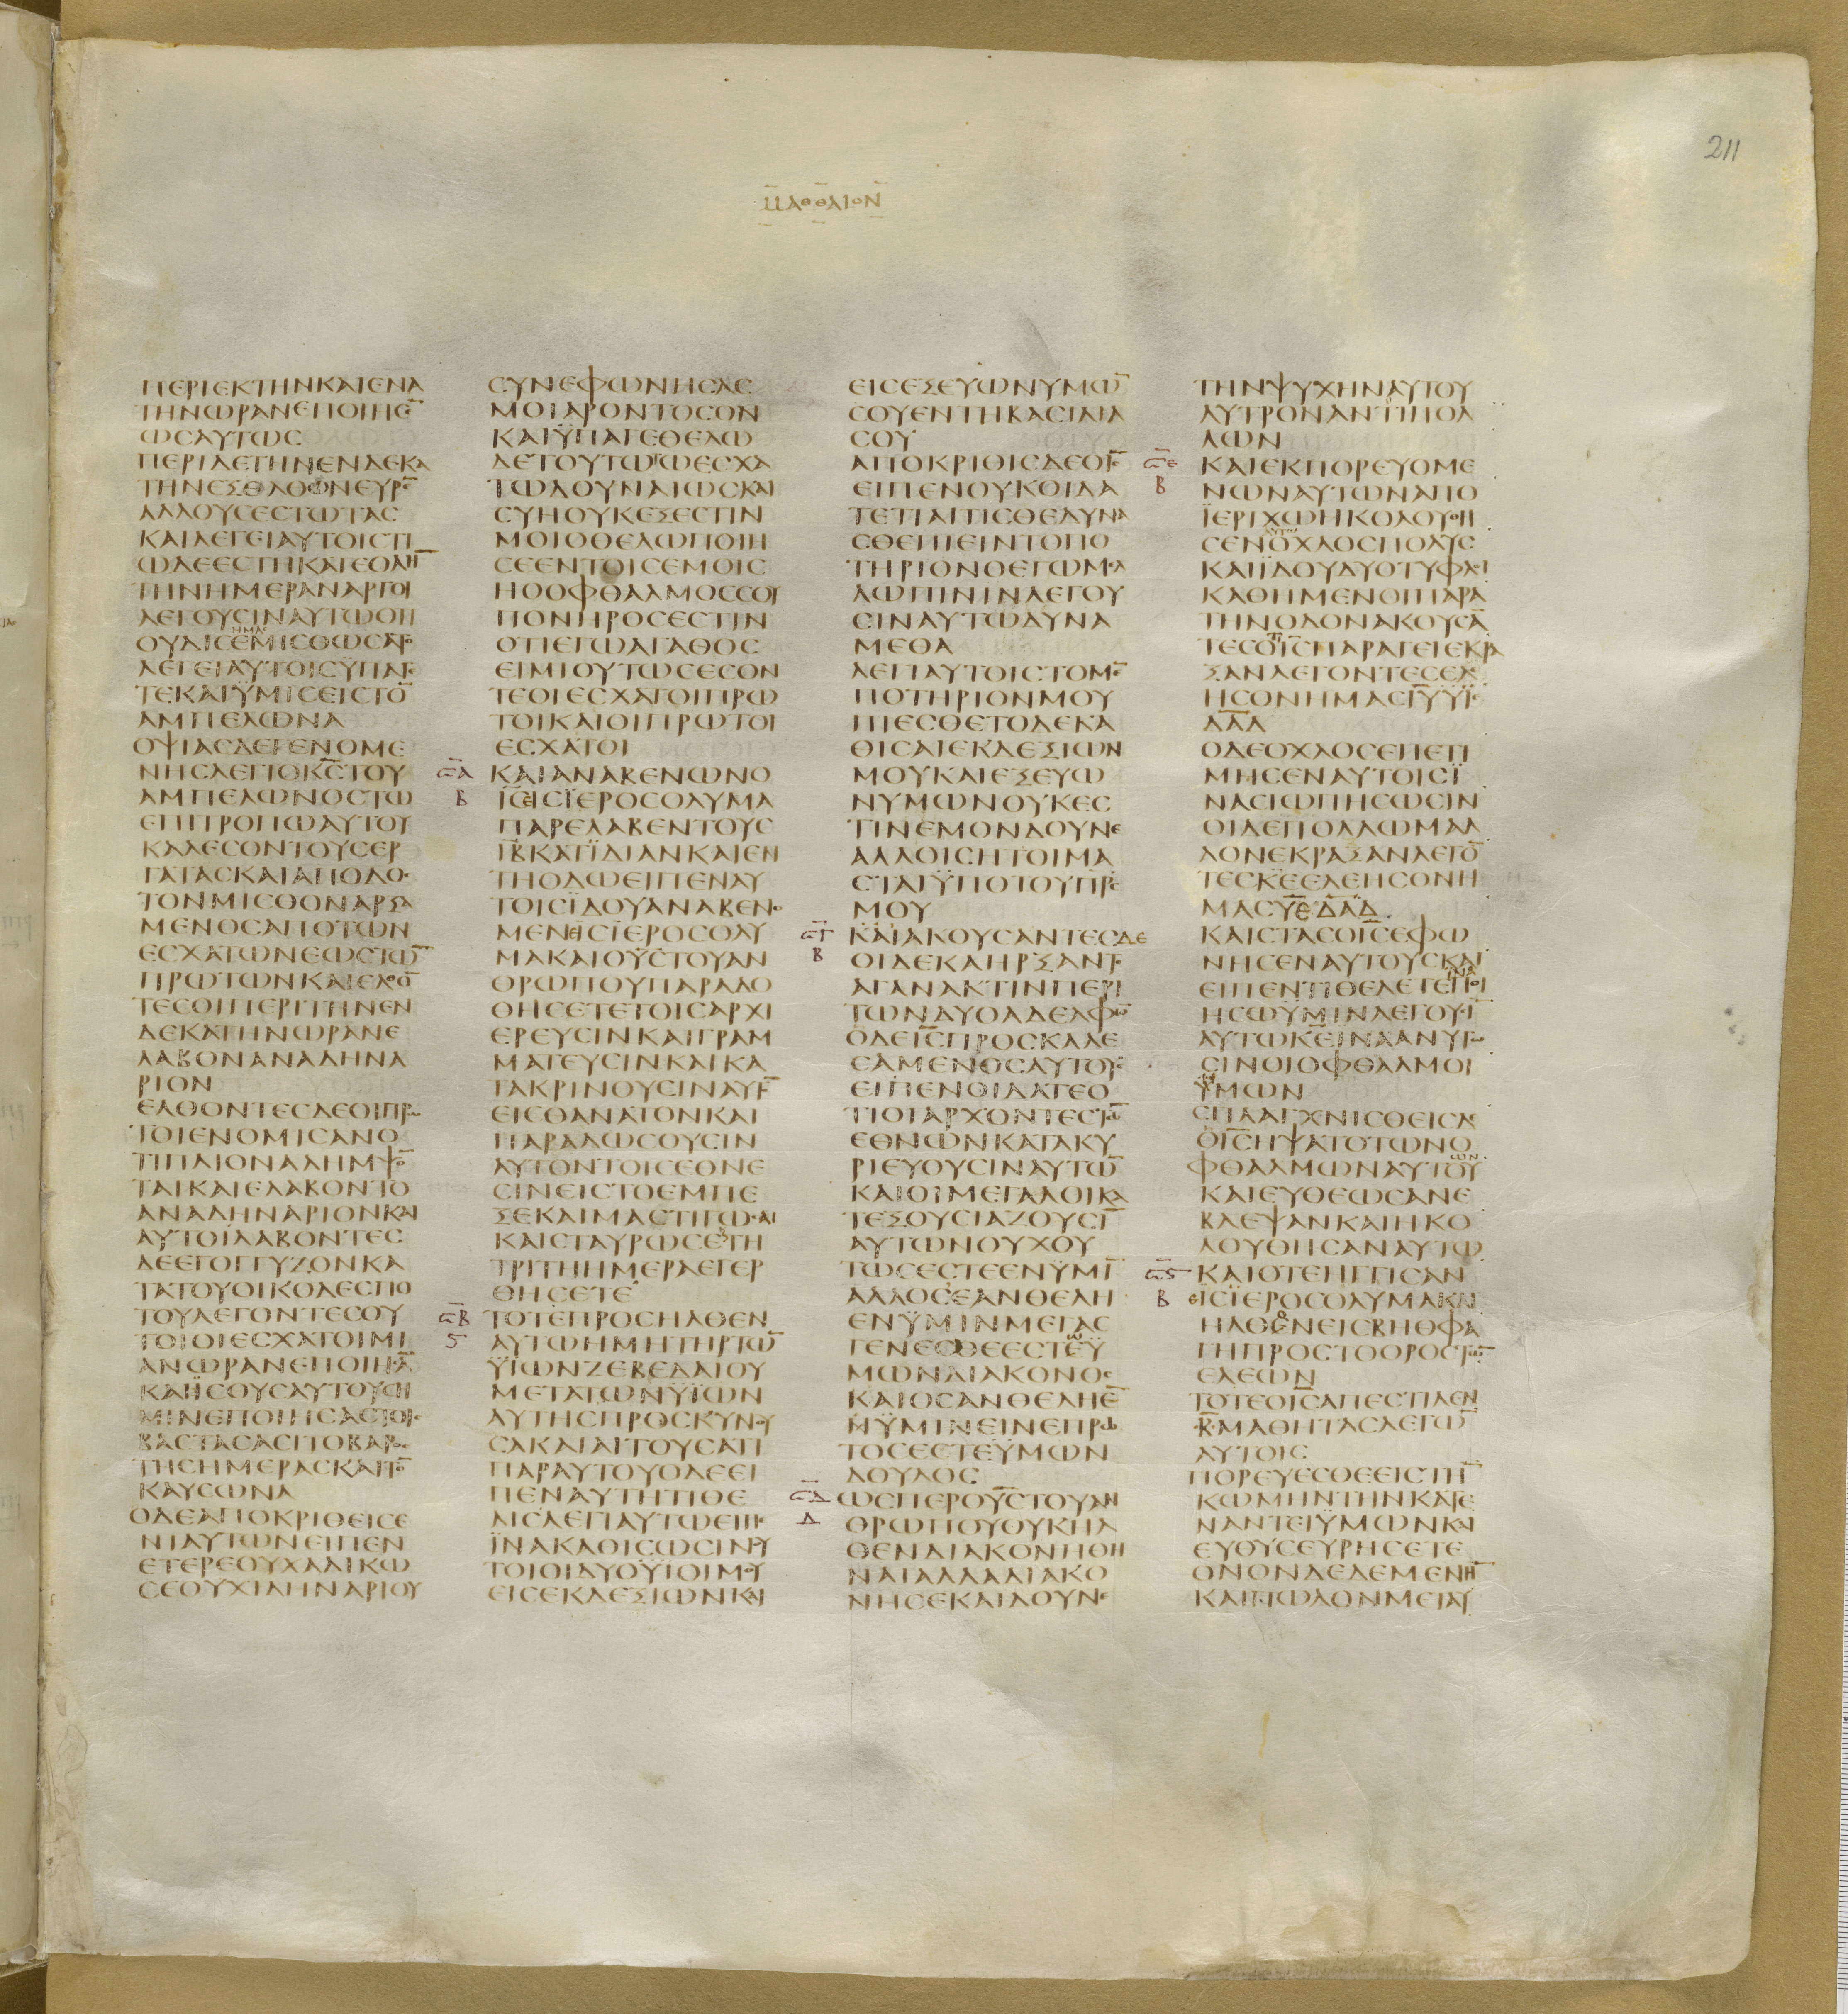 ΜΑΘΘΑΙΟΝ
211
ΠΕΡΙΕΚΤΗΝΚΑΙΕΝΑ
ΤΗΝΩΡΑΝΕΠΟΙΗϹΕ̅
ΩϹΑΥΤΩϹ
ΠΕΡΙΔΕΤΗΝΕΝΔΕΚΑ
ΤΗΝΕΞΕΛΘΩΝΕΥΡΕ̅
ΑΛΛΟΥϹΕϹΤΩΤΑϹ
ΚΑΙΛΕΓΕΙΑΥΤΟΙϹΤΙ
ΩΔΕΕϹΤΗΚΑΤΕΟΛΗ̅
ΤΗΝΗΜΕΡΑΝΑΡΓΟΙ
ΛΕΓΟΥϹΙΝΑΥΤΩΟΤΙ
ΗΜΑϹ
ΟΥΔΙϹΕΜΙϹΘΩϹΑΤΟ
ΛΕΓΕΙΑΥΤΟΙϹΫΠΑΓΕ
ΤΕΚΑΙΫΜΙϹΕΙϹΤΟ̅
ΑΜΠΕΛΩΝΑ
ΟΨΙΑϹΔΕΓΕΝΟΜΕ
ΝΗϹΛΕΓΙΟΚ̅Ϲ̅ΤΟΥ
ΑΜΠΕΛΩΝΟϹΤΩ
ΕΠΙΤΡΟΠΩΑΥΤΟΥ
ΚΑΛΕϹΟΝΤΟΥϹΕΡ
ΓΑΤΑϹΚΑΙΑΠΟΔΟϹ
ΤΟΝΜΙϹΘΟΝΑΡΞΑ
ΜΕΝΟϹΑΠΟΤΩΝ
ΕϹΧΑΤΩΝΕΩϹΤΩ̅
ΠΡΩΤΩΝΚΑΙΕΛΘΟ̅
ΤΕϹΟΙΠΕΡΙΤΗΝΕΝ
ΔΕΚΑΤΗΝΩΡΑΝΕ
ΛΑΒΟΝΑΝΑΔΗΝΑ
ΡΙΟΝ
ΕΛΘΟΝΤΕϹΔΕΟΙΠΡΩ
ΤΟΙΕΝΟΜΙϹΑΝΟ
ΤΙΠΛΙΟΝΑΛΗΜΨΟ̅
ΤΑΙΚΑΙΕΛΑΒΟΝΤΟ
ΑΝΑΔΗΝΑΡΙΟΝΚΑΙ
ΑΥΤΟΙΛΑΒΟΝΤΕϹ
ΔΕΕΓΟΓΓΥΖΟΝΚΑ
ΤΑΤΟΥΟΙΚΟΔΕϹΠΟ
ΤΟΥΛΕΓΟΝΤΕϹΟΥ
ΤΟΙΟΙΕϹΧΑΤΟΙΜΙ
ΑΝΩΡΑΝΕΠΟΙΗϹΑ̅
ΚΑΙΪϹΟΥϹΑΥΤΟΥϹΗ
ΜΙΝΕΠΟΙΗϹΑϹΤΟΙϹ
ΒΑϹΤΑϹΑϹΙΤΟΒΑΡΟϹ
ΤΗϹΗΜΕΡΑϹΚΑΙΤΟ̅
ΚΑΥϹΩΝΑ
ΟΔΕΑΠΟΚΡΙΘΕΙϹΕ
ΝΙΑΥΤΩΝΕΙΠΕΝ
ΕΤΕΡΕΟΥΧΑΔΙΚΩ
ϹΕΟΥΧΙΔΗΝΑΡΙΟΥ
ϹΥΝΕΦΩΝΗϹΑϹ
ΜΟΙΑΡΟΝΤΟϹΟΝ
ΚΑΙΫΠΑΓΕΘΕΛΩ
ΔΕΤΟΥΤΩΤΩΕϹΧΑ
ΤΩΔΟΥΝΑΙΩϹΚΑΙ
ϹΥΗΟΥΚΕΞΕϹΤΙΝ
ΜΟΙΟΘΕΛΩΠΟΙΗ
ϹΕΕΝΤΟΙϹΕΜΟΙϹ
ΗΟΟΦΘΑΛΜΟϹϹΟΥ
ΠΟΝΗΡΟϹΕϹΤΙΝ
ΟΤΙΕΓΩΑΓΑΘΟϹ
ΕΙΜΙΟΥΤΩϹΕϹΟΝ
ΤΕΟΙΕϹΧΑΤΟΙΠΡΩ
ΤΟΙΚΑΙΟΙΠΡΩΤΟΙ
ΕϹΧΑΤΟΙ
Ϲ̅Α ΚΑΙΑΝΑΒΕΝΩΝΟ
Β Ι̅Ϲ̅ΕΙϹΪΕΡΟϹΟΛΥΜΑ
ΠΑΡΕΛΑΒΕΝΤΟΥϹ
Ι̅Β̅ΚΑΤΪΔΙΑΝΚΑΙΕΝ
ΤΗΟΔΩΕΙΠΕΝΑΥ
ΤΟΙϹΪΔΟΥΑΝΑΒΕΝΟ
ΜΕΝΕΙϹΪΕΡΟϹΟΛΥ
ΜΑΚΑΙΟΥ̅Ϲ̅ΤΟΥΑΝ
ΘΡΩΠΟΥΠΑΡΑΔΟ
ΘΗϹΕΤΕΤΟΙϹΑΡΧΙ
ΕΡΕΥϹΙΝΚΑΙΓΡΑΜ
ΜΑΤΕΥϹΙΝΚΑΙΚΑ
ΤΑΚΡΙΝΟΥϹΙΝΑΥΤΟ̅
ΕΙϹΘΑΝΑΤΟΝΚΑΙ
ΠΑΡΑΔΩϹΟΥϹΙΝ
ΑΥΤΟΝΤΟΙϹΕΘΝΕ
ϹΙΝΕΙϹΤΟΕΜΠΕ
ΞΕΚΑΙΜΑϹΤΙΓΩϹΑΙ
ΚΑΙϹΤΑΥΡΩϹΕΤΗ
ΤΡΙΤΗΗΜΕΡΑΕΓΕΡ
ΘΗϹΕΤΕ
Ϲ̅Β ΤΟΤΕΠΡΟϹΗΛΘΕΝ
Ϛ ΑΥΤΩΗΜΗΤΗΡΤΩ̅
ΫΪΩΝΖΕΒΕΔΑΙΟΥ
ΜΕΤΑΤΩΝΫΪΩΝ
ΑΥΤΗϹΠΡΟϹΚΥΝΟΥ
ϹΑΚΑΙΑΙΤΟΥϹΑΤΙ
ΠΑΡΑΥΤΟΥΟΔΕΕΙ
ΠΕΝΑΥΤΗΤΙΘΕ
ΛΙϹΛΕΓΙΑΥΤΩΕΙΠΕ
ΪΝΑΚΑΘΙϹΩϹΙΝΟΥ
ΤΟΙΟΙΔΥΟΫΪΟΙΜΟΥ
ΕΙϹΕΚΔΕΞΙΩΝΚΑΙ
ΕΙϹΕΞΕΥΩΝΥΜΩ̅
ϹΟΥΕΝΤΗΒΑϹΙΛΙΑ
ϹΟΥ
ΑΠΟΚΡΙΘΙϹΔΕΟΙ̅Ϲ̅
ΕΙΠΕΝΟΥΚΟΙΔΑ
ΤΕΤΙΑΙΤΙϹΘΕΔΥΝΑ
ϹΘΕΠΙΕΙΝΤΟΠΟ
ΤΗΡΙΟΝΟΕΓΩΜΕΛ
ΛΩΠΙΝΙΝΛΕΓΟΥ
ϹΙΝΑΥΤΩΔΥΝΑ
ΜΕΘΑ
ΛΕΓΙΑΥΤΟΙϹΤΟΜΕ̅
ΠΟΤΗΡΙΟΝΜΟΥ
ΠΙΕϹΘΕΤΟΔΕΚΑ
ΘΙϹΑΙΕΚΔΕΞΙΩΝ
ΜΟΥΚΑΙΕΞΕΥΩ
ΝΥΜΩΝΟΥΚΕϹ
ΤΙΝΕΜΟΝΔΟΥΝΕ
ΑΛΛΟΙϹΗΤΟΙΜΑ
ϹΤΑΙΫΠΟΤΟΥΠ̅Ρ̅Ϲ̅
ΜΟΥ
Ϲ̅Γ ΚΑΙΑΚΟΥϹΑΝΤΕϹΔΕ
Β ΟΙΔΕΚΑΗΡΞΑΝΤΟ
ΑΓΑΝΑΚΤΙΝΠΕΡΙ
ΤΩΝΔΥΟΑΔΕΛΦΩ̅
ΟΔΕΙ̅Ϲ̅ΠΡΟϹΚΑΛΕ
ϹΑΜΕΝΟϹΑΥΤΟΥϹ
ΕΙΠΕΝΟΙΔΑΤΕΟ
ΤΙΟΙΑΡΧΟΝΤΕϹΤΩ̅
ΕΘΝΩΝΚΑΤΑΚΥ
ΡΙΕΥΟΥϹΙΝΑΥΤΩ̅
ΚΑΙΟΙΜΕΓΑΛΟΙΚΑ
ΤΕΞΟΥϹΙΑΖΟΥϹΙ̅
ΑΥΤΩΝΟΥΧΟΥ
ΤΩϹΕϹΤΕΕΝΫΜΙ̅
ΑΛΛΟϹΕΑΝΘΕΛΗ
ΕΝΫΜΙΝΜΕΓΑϹ
ΓΕΝΕϹΘΕΕϹΤΕΫ
ΜΩΝΔΙΑΚΟΝΟϹ
ΚΑΙΟϹΑΝΘΕΛΗΕ̅
ΗΫΜΙΝΕΙΝΕΠΡΩ
ΤΟϹΕϹΤΕΫΜΩΝ
ΔΟΥΛΟϹ
Ϲ̅Δ ΩϹΠΕΡΟΥ̅Ϲ̅ΤΟΥΑΝ
Δ ΘΡΩΠΟΥΟΥΚΗΛ
ΘΕΝΔΙΑΚΟΝΗΘΗ
ΝΑΙΑΛΛΑΔΙΑΚΟ
ΝΗϹΕΚΑΙΔΟΥΝΕ
ΤΗΝΨΥΧΗΝΑΥΤΟΥ
ΛΥΤΡΟΝΑΝΤΙΠΟΛ
ΛΩΝ
Ϲ̅Ε ΚΑΙΕΚΠΟΡΕΥΟΜΕ
Β ΝΩΝΑΥΤΩΝΑΠΟ
ΪΕΡΙΧΩΗΚΟΛΟΥΘΗ
ΑΥΤΩ
ϹΕΝΟΧΛΟϹΠΟΛΥϹ
ΚΑΙΪΔΟΥΔΥΟΤΥΦΛΟΙ
ΚΑΘΗΜΕΝΟΙΠΑΡΑ
ΤΗΝΟΔΟΝΑΚΟΥϹΑ̅
ΤΕϹΟΤΙΙ̅Ϲ̅ΠΑΡΑΓΕΙΕΚΡΑ
ΞΑΝΛΕΓΟΝΤΕϹΕΛΕ
ΗϹΟΝΗΜΑϹΙ̅Υ̅Υ̅Ϊ̅Ε
Δ̅Α̅Δ̅
ΟΔΕΟΧΛΟϹΕΠΕΤΙ
ΜΗϹΕΝΑΥΤΟΙϹΪ
ΝΑϹΙΩΠΗϹΩϹΙΝ
ΟΙΔΕΠΟΛΛΩΜΑΛ
ΛΟΝΕΚΡΑΞΑΝΛΕΓΟ̅
ΤΕϹΚ̅Ε̅ΕΛΕΗϹΟΝΗ
ΜΑϹΥ̅Ε̅Δ̅Α̅Δ̅
ΚΑΙϹΤΑϹΟΙ̅Ϲ̅ΕΦΩ
ΝΗϹΕΝΑΥΤΟΥϹΚΑΙ
ΪΝΑ
ΕΙΠΕΝΤΙΘΕΛΕΤΕΠΟΙ
ΗϹΩΫΜΙΝΛΕΓΟΥϹΙ̅
ΑΥΤΩΚ̅Ε̅ΙΝΑΑΝΥΓΩ
ϹΙΝΟΙΟΦΘΑΛΜΟΙ
ΫΜΩΝ
ϹΠΛΑΓΧΝΙϹΘΕΙϹΔΕ
ΟΙ̅Ϲ̅ΗΨΑΤΟΤΩΝΟ
ΦΘΑΛΜΩΝΑΥΤΟΥ
ΚΑΙΕΥΘΕΩϹΑΝΕ
ΒΛΕΨΑΝΚΑΙΗΚΟ
ΛΟΥΘΗϹΑΝΑΥΤΩ
Ϲ̅Ϛ ΚΑΙΟΤΕΗΓΓΙϹΑΝ
Β ΕΙϹΪΕΡΟϹΟΛΥΜΑΚΑΙ
ΗΛΘΕΝΕΙϹΒΗΘΦΑ
ΓΗΠΡΟϹΤΟΟΡΟϹΤΩ̅
ΕΛΕΩΝ
ΤΟΤΕΟΙ̅Ϲ̅ΑΠΕϹΤΙΛΕΝ
Β̅ΜΑΘΗΤΑϹΛΕΓΩ̅
ΑΥΤΟΙϹ
ΠΟΡΕΥΕϹΘΕΕΙϹΤΗ̅
ΚΩΜΗΝΤΗΝΚΑΤΕ
ΝΑΝΤΕΙΫΜΩΝΚΑΙ
ΕΥΘΥϹΕΥΡΗϹΕΤΕ
ΟΝΟΝΔΕΔΕΜΕΝΗ̅
ΚΑΙΠΩΛΟΝΜΕΤΑΥ